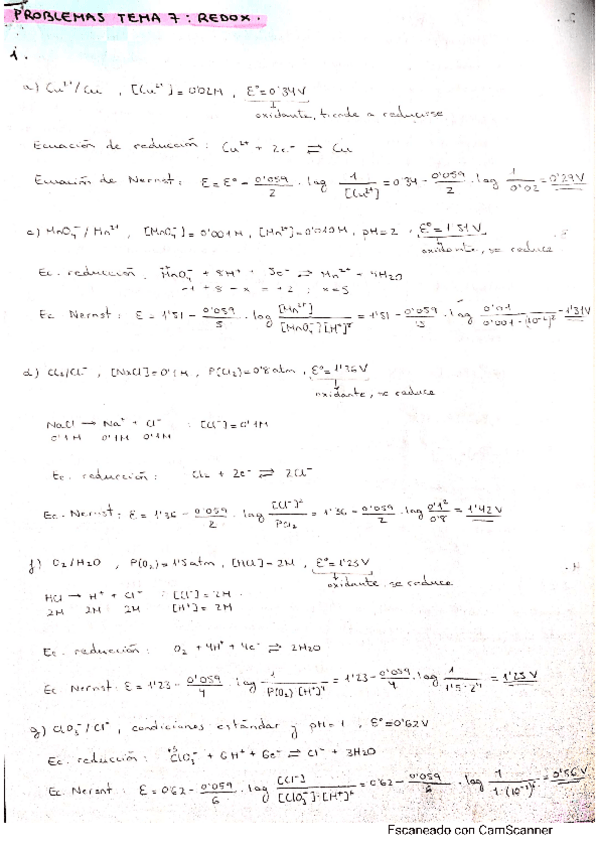 PROBLEMAS TEMA 7: REDOX.
1.
a) Cu²⁺/Cu , [Cu²⁺] = 0'02M , ε°=0'34V
oxidante, tiende a reducirse
Ecuación de reducción: Cu²⁺ + 2e⁻ ⇌ Cu
Ecuación de Nernst: ε = ε° - 0'059/2 · log 1/[Cu²⁺] = 0'34 - 0'059/2 · log 1/0'02 = 0'29V
c) MnO₄⁻/Mn²⁺ , [MnO₄⁻] = 0'001M , [Mn²⁺] = 0'010M , pH=2 , ε°=1'51V
oxidante, se reduce
Ec. reducción: MnO₄⁻ + 8H⁺ + 5e⁻ ⇌ Mn²⁺ + 4H₂O
-1 + 8 - x = +2 ; x=5
Ec. Nernst: ε = 1'51 - 0'059/5 · log [Mn²⁺]/[MnO₄⁻][H⁺]⁸ = 1'51 - 0'059/5 · log 0'01/0'001·(10⁻²)⁸ = 1'31V
d) Cl₂/Cl⁻ , [NaCl] = 0'1M , P(Cl₂) = 0'8atm , ε°=1'36V
oxidante, se reduce
NaCl → Na⁺ + Cl⁻ : [Cl⁻] = 0'1M
0'1M 0'1M 0'1M
Ec. reducción: Cl₂ + 2e⁻ ⇌ 2Cl⁻
Ec. Nernst: ε = 1'36 - 0'059/2 · log [Cl⁻]²/PCl₂ = 1'36 - 0'059/2 · log 0'1²/0'8 = 1'42V
f) O₂/H₂O , P(O₂) = 1'5atm , [HCl] = 2M , ε°=1'23V
oxidante, se reduce
HCl → H⁺ + Cl⁻ : [Cl⁻] = 2M
2M 2M 2M [H⁺] = 2M
Ec. reducción: O₂ + 4H⁺ + 4e⁻ ⇌ 2H₂O
Ec. Nernst: ε = 1'23 - 0'059/4 · log 1/P(O₂)[H⁺]⁴ = 1'23 - 0'059/4 · log 1/1'5·2⁴ = 1'25V
g) ClO₃⁻/Cl⁻ , condiciones estándar y pH=1 , ε°=0'62V
Ec. reducción: ClO₃⁻ + 6H⁺ + 6e⁻ ⇌ Cl⁻ + 3H₂O
Ec. Nernst: ε = 0'62 - 0'059/6 · log [Cl⁻]/[ClO₃⁻]·[H⁺]⁶ = 0'62 - 0'059/6 · log 1/1·(10⁻¹)⁶ = 0'56V
Escaneado con CamScanner